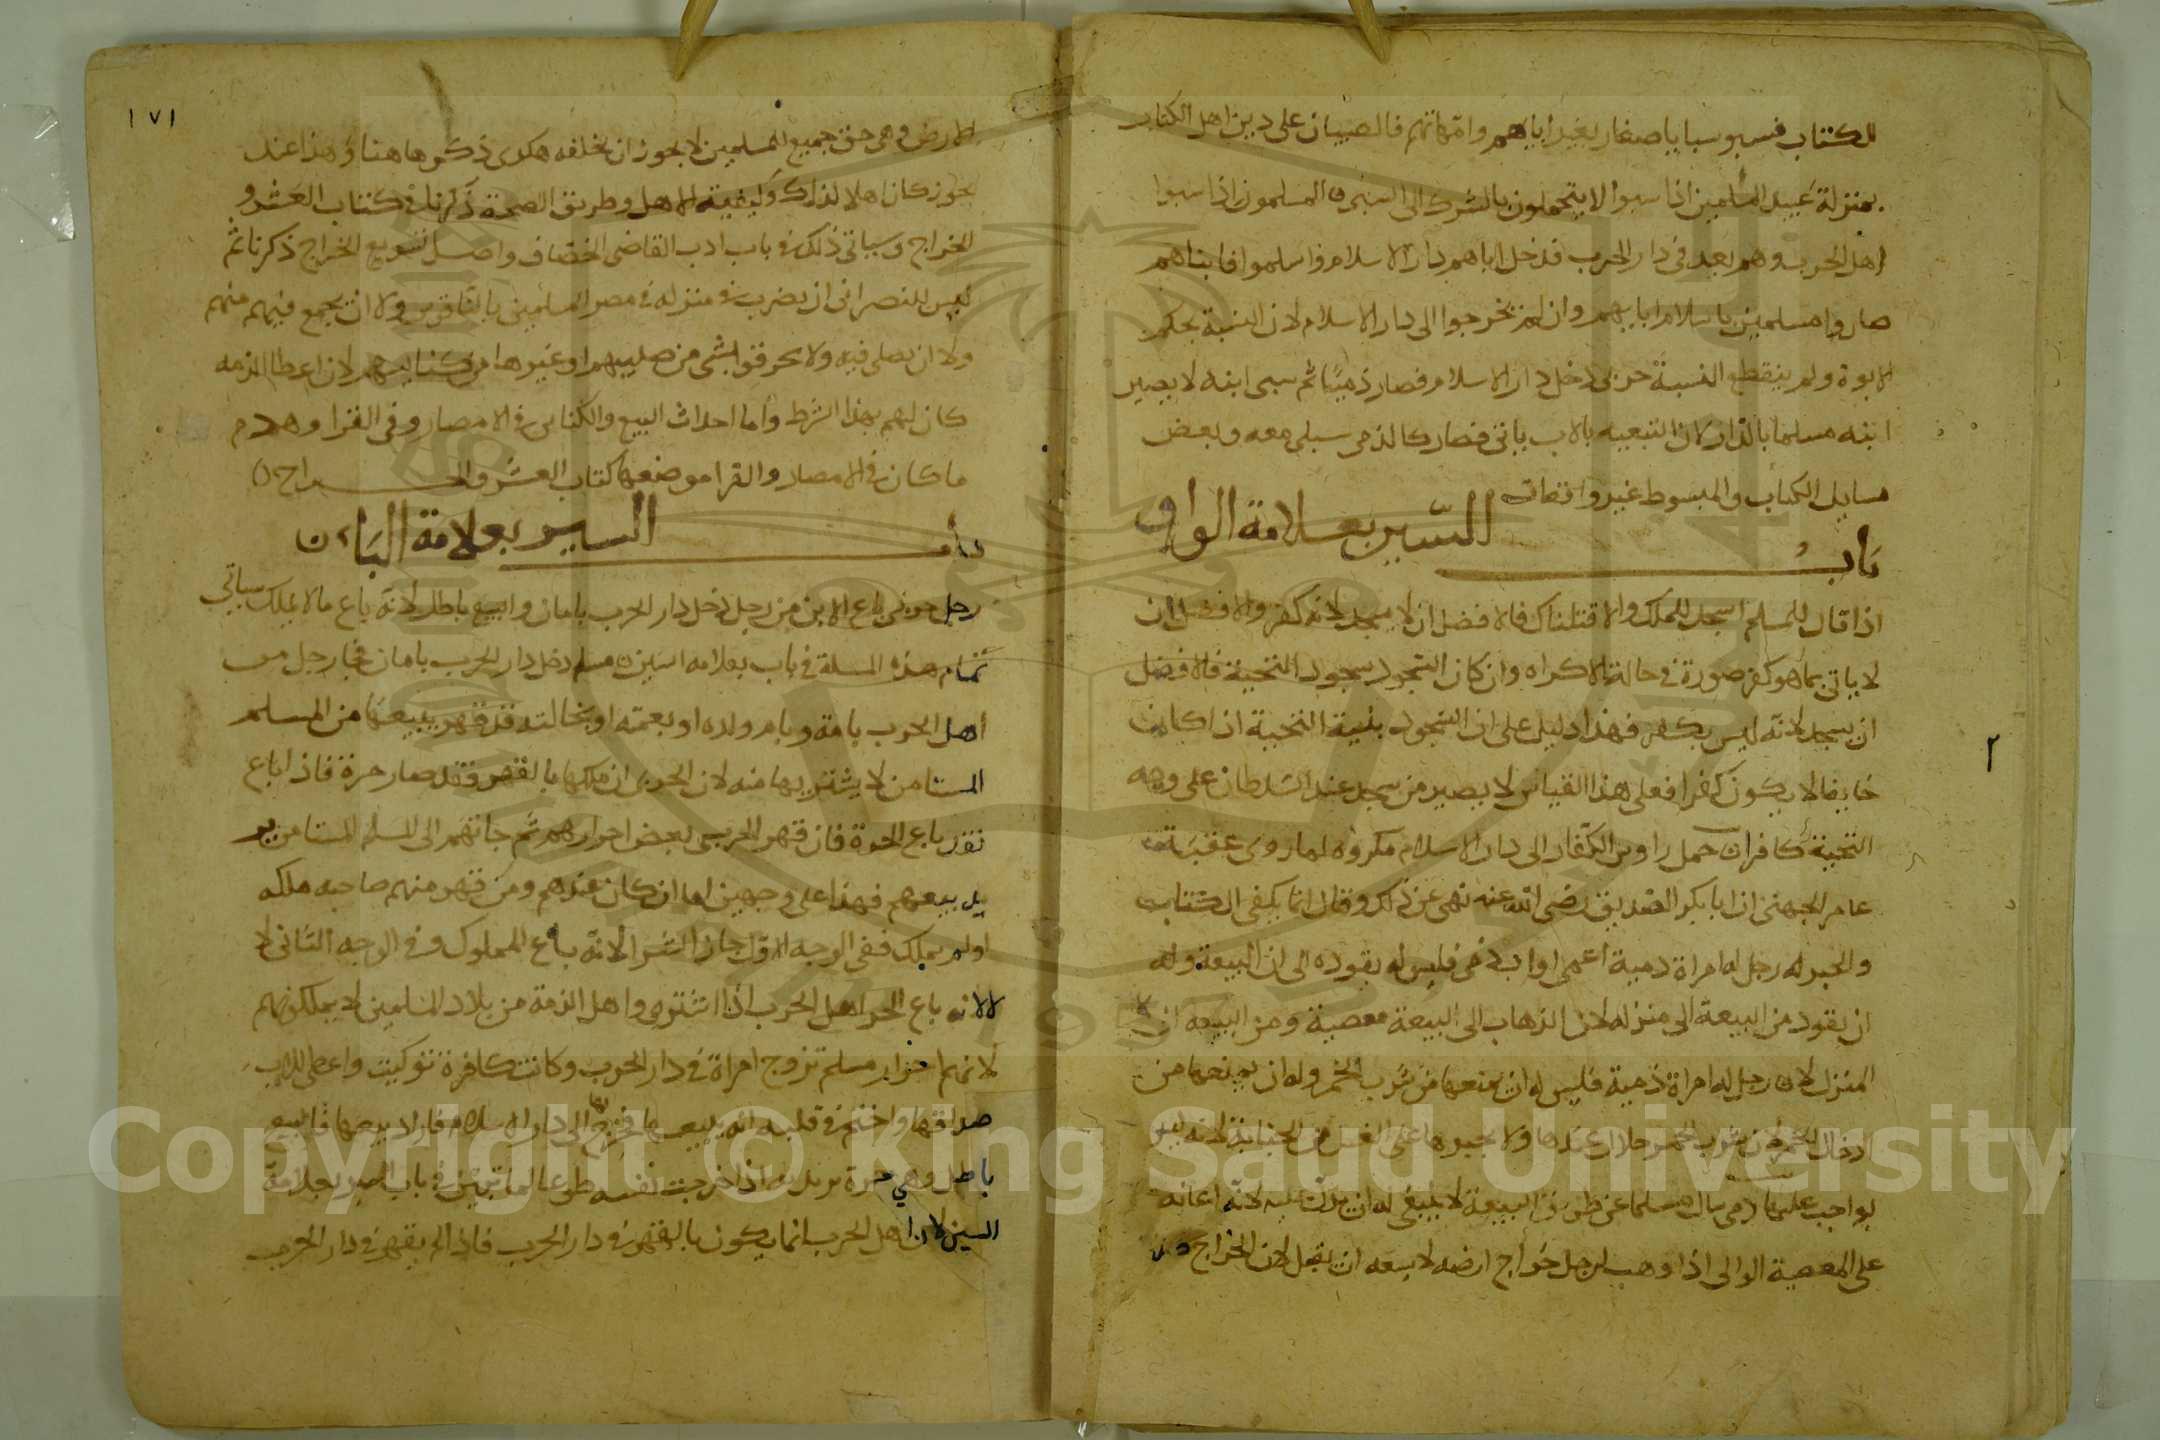 الكتاب فسبوا سبايا صغار بغير اباهم وامهاتهم فالصبيان على دين اهل الكتاب
بمنزلة عبيد المسلمين اذا سبوا لا يتحملون بالشرك الى السبي المسلمون اذا سبوا
اهل الحرب وهم بعد في دار الحرب فدخل اباهم دار الاسلام واسلموا فابناهم
صاروا مسلمين باسلام ابايهم وان لم يخرجوا الى دار الاسلام لان النسبة بحكم
الابوة ولم ينقطع النسبة حربى دخل دار الاسلام فصار ذميا ثم سبى ابنه لا يصير
ابنه مسلما بالدار لان التبعيه بالاب باتى فصار كالذمى سبى معه وبعض
مسايل الكتاب والمبسوط غير واقعات
باب السير بعلامة الواو
اذا قال للمسلم اسجد للملك والا قتلناك فالافضل ان لا يسجد لانه كفر والافضل ان
لا ياتى بما هو كفر صورة فى حالة الاكراه وان كان السجود سجود التحية فالافضل
ان يسجد لانه ليس بكفر فهذا دليل على ان السجود بنية التحية اذا كان
خايفا لا يكون كفرا فعلى هذا القياس لا يصير من سجد عند السلطان على وجه
التحية كافرا حمل راوس الكفار الى دار الاسلام مكروه لما روى عقبة بن
عامر الجهنى ان ابا بكر الصديق رضى الله عنه نهى عن ذلك وقال انما يكفى الكتاب
والخبر له رجل له امراة ذمية اعمى او اب ذمى فليس له يقوده الى ان البيعة وله
ان يقود من البيعة الى منزله لان الذهاب الى البيعة معصية ومن البيعة الى
المنزل لا رجل له امراة ذمية فليس له ان يمنعها من شرب الخمر وله ان يمنعها من
ادخال الخمر لان شرب الخمر حلال عندها ولا يجبرها على الغسل من الجنابة لانه ليس
بواجب عليها ذمى سال مسلما عن طريق البيعة لا ينبغى له ان يدله عليه لانه اعانه
على المعصية الوالى اذا وهب لرجل خراج ارضه لا يسعه ان يقبل لان الخراج
٢
١٧١
الارض وهى حق جميع المسلمين لا يجوز ان يخلفه هكذى ذكرها هنا وهذا عند
يجوز كان اهلا لذلك وكيفية الاهل وطريق الصحة ذكرنا فى كتاب العشر و
الخراج وسياتى ذلك فى باب ادب القاضى الخصاف واصل الخراج ذكرنا ثم
ليس للنصرانى ان يضرب فى منزله فى مصر المسلمين بالناقوس ولا ان يجمع فيهم منهم
ولا ان يصلى فيه ولا يخرقوا بشى من صليبهم او غيرها من كنايسهم لان اعطا الذمه
كان لهم بهذا الشرط واما احداث البيع والكنايس فى الامصار وفى القرا وهدم
ما كان فى الامصار والقرا موضعها كتاب العشر والخراج
باب السير بعلامة الباء
رجل حربى باع الابن من رجل دخل دار الحرب بامان والبيع باطل لانه باع مالا يملك سياتى
تمام هذه المسلة فى باب بعلامه السين مسلم دخل دار الحرب بامان فجا رجل من
اهل الحرب بامة وبام ولده او بعمته او بخالته قد قهر يبيعها من المسلم
المستامن لا يشتريها منه لان الحربى ان ملكها بالقهر فقد صار حرة فاذا باع
فقد باع الحرة فان قهر الحربى بعض احرارهم ثم جا بهم الى المسلم المستامن ير
يد بيعهم فهذا على وجهين اما ان كان عندهم ومن قهر منهم صاحبه ملكه
اولم يملك ففى الوجه الاول جاز الشرا لانه باع المملوك وفى الوجه الثانى لا
لانه باع الحر اهل الحرب اذا اشتروا اهل الذمة من بلاد المسلمين لا يملكونهم
لانهم احرار مسلم تزوج امراة فى دار الحرب وكانت كافرة واعطى للاب
صداقها واختم فى قلبه انه يبيعها فخرج بها الى دار الاسلام فاراد بيعها فالبيع
باطل وهى حرة يريد به اذا خرجت نفسه طوعا لما تبين فى باب السير بعلامة
السين لان اهل الحرب انما يكون بالقهر فى دار الحرب فاذا لم يقهر فى دار الحرب
Copyright © King Saud University